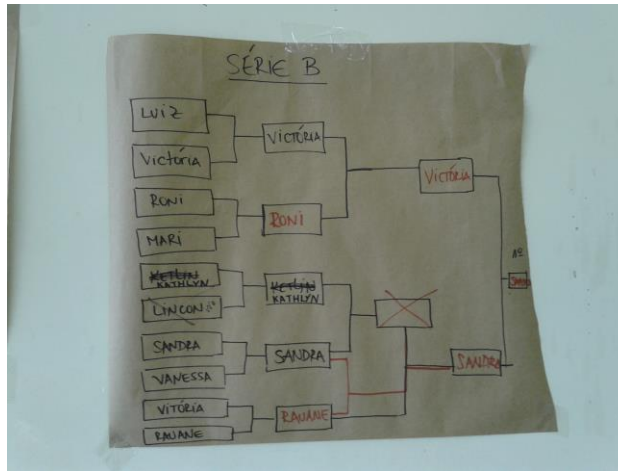 SÉRIE B
LUIZ
Victória
RONI
MARI
KETLIN
KATHLYN
LINCON
SANDRA
VANESSA
VITÓRIA
RAUANE
VICTÓRIA
RONI
KETLIN
KATHLYN
SANDRA
RAUANE
VICTÓRIA
SANDRA
1º